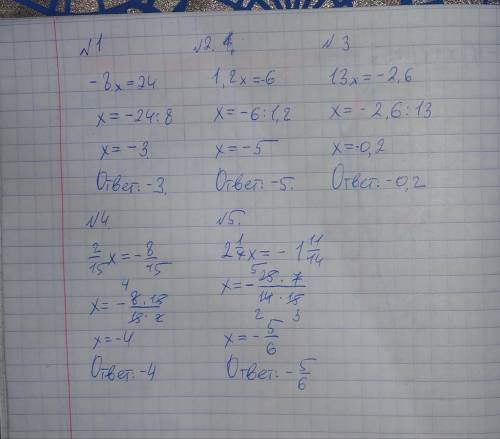 №1
-8x=24
x=-24:8
x=-3.
Ответ: -3.
№2.
1,2x=-6
x=-6:1,2
x=-5
Ответ: -5.
№3
13x=-2,6
x=-2,6:13
x=-0,2
Ответ: -0,2
№4
2/15 x=-8/15
x=-8·15/15·2
4
x=-4
Ответ: -4
№5.
2 1/7 x=-1 11/14
5
x=-25·7/14·15
2 3
x=-5/6
Ответ: -5/6